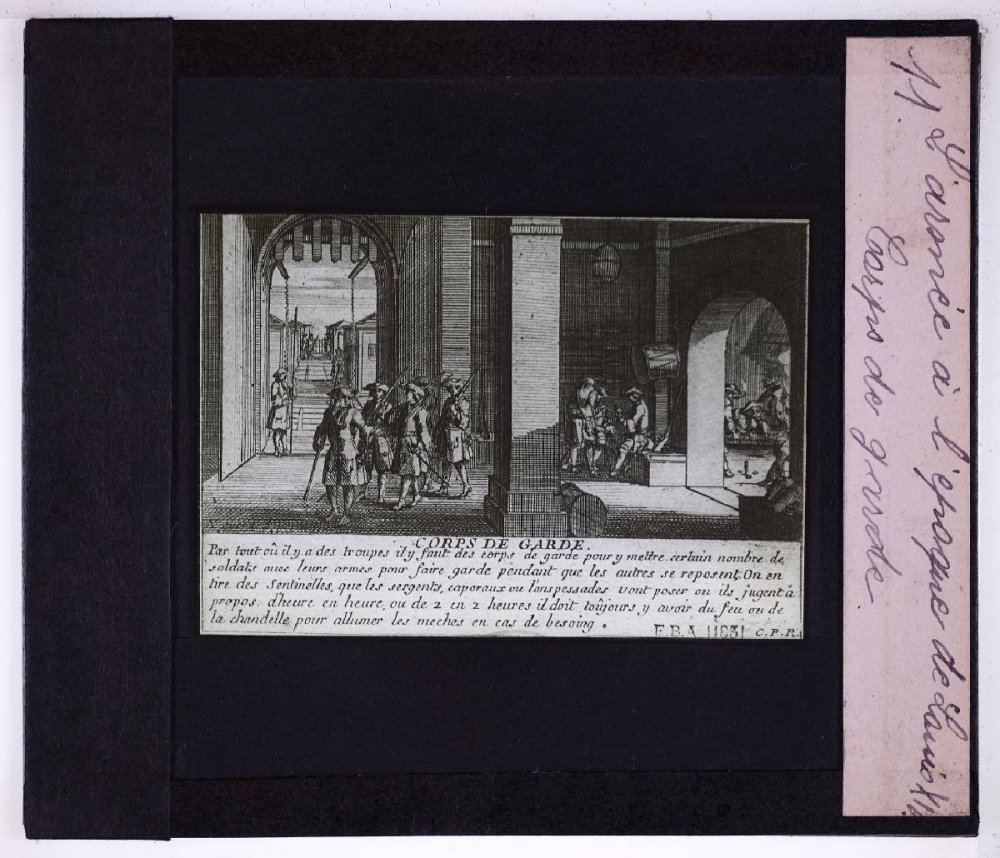 CORPS DE GARDE.
Par tout où il y a des troupes il y faut des corps de garde pour y mettre certain nombre de
soldats avec leurs armes pour faire garde pendant que les autres se reposent. On en
tire des Sentinelles, que les sergents, caporaux ou lanspessades vont poser ou ils jugent à
propos. d'heure en heure, ou de 2 en 2 heures il doit toûjours y avoir du feu ou de
la chandelle pour allumer les meches en cas de besoing.
E.B.A 11831 C.P.R.
11. L'armée à l'époque de Louis XIV
Corps de garde.